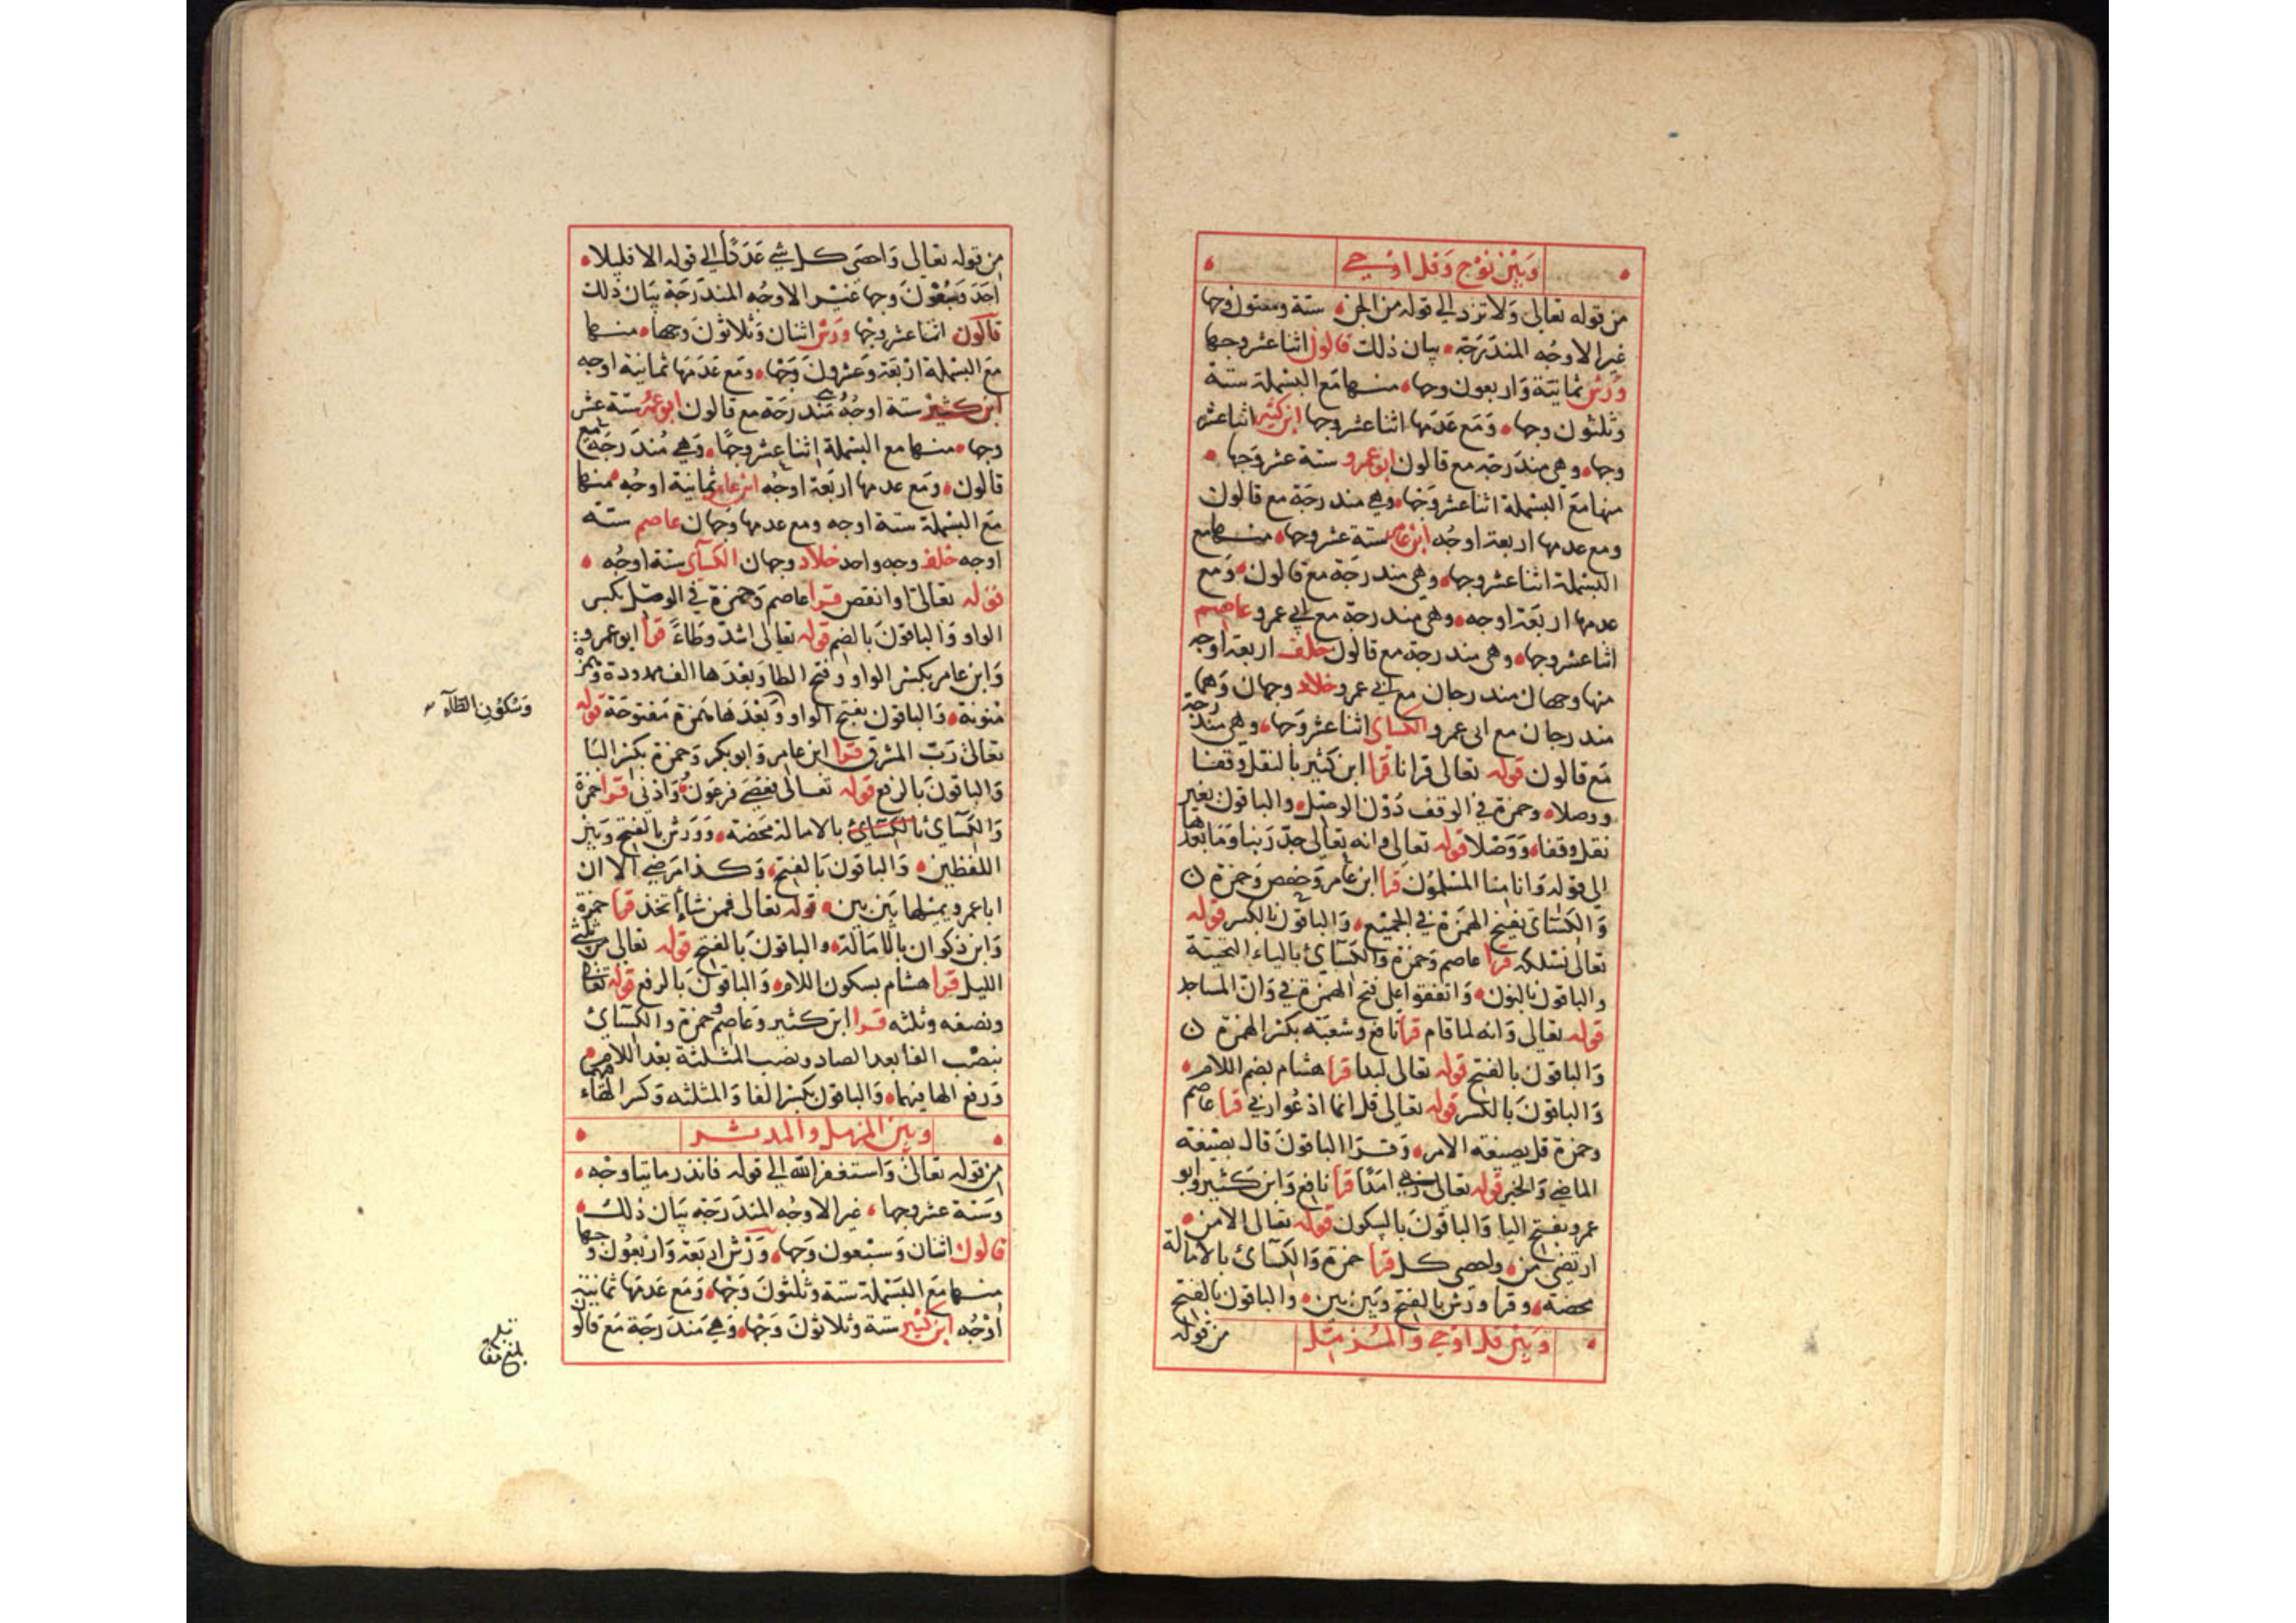 وبين نوح وقل اوحي
من قوله تعالى ولا تزد الي قوله من الجن ستة وستون وجها
غير الاوجُه المندَرَجَة بيان ذلك قالون اثنا عشر وجها
ورش ثمانية واربعون وجها منها مع البسملة ستة
وثلثون وجها وَمَع عَدَمها اثنا عشر وجها ابن كثير اثنا عشر
وجها وهي مندرجة مع قالون ابو عمرو ستة عشر وَجها
منها مَعَ البسملة اثنا عشر وَجها وهي مندرجَة مع قالون
ومع عدمها اربعة اوجُه ابن عامر ستة عشر وجها منها مع
البسملة اثنا عشر وجها وهي مندرجَة مع قالون وَمَع
عدمها اربَعَة اوجه وهي مندرجة مع ابي عمرو عاصم
اثنا عشر وجها وهي مندرجة مع قالون خلف اربعة اوجه
منها وجهان مندرجان مع ابي عمرو خلاد وجهان وَهما
مندرجان مع ابي عمرو الكساى اثنا عشر وَجها وهي مندرجة
مَع قالون قوله تعالى قرانا قرا ابن كثير بالنقل وقفا
ووصلا وحمزة في الوقف دُوْن الوصل والباقون بغير
نقل وقفا وَوَصْلا قوله تعالى وانه تعالى جدّ رَبنا وَمَا بعدَها
الي قوله وَانا منا المسْلموُنَ قرا ابن عامر وَحفص وَحمزة
وَالكسَائ بفتح الهَمزَة في الجميْع وَالباقون بالكسر قوله
تعالى نسلكه قرا عاصم وَحمزة وَالكسَآئ بالياء التحيتة
والباقون بالنون وَاتفقوا على فتح الهمزة في وَانّ المساجد
قوله تعالى وَانه لما قام قرا نافع وشعبَة بكسْر الهمزة
وَالباقونَ بالفتح قوله تعالى لبدا قرا هشام بضم اللام
وَالباقونَ بالكسر قوله تعالى قل انما ادعُوا ربي قرا عاصم
وحمزة قل بصيغة الامر وَقرَا الباقونَ قال بصيْغة
الماضي وَالخبر قوله تعالى ربي امَدًا قرا نافع وَابن كَثير وابو
عمرو بفتح اليا وَالباقونَ بالسكون قوله تعالى الا من
ارتضى من واحصى كل قرا حمزة وَالكسَآئ بالامالة
محضة وقرا وَرش بالفتح وَبين بين والباقون بالفتح
وَبين قل اوحي والمُزمّل
من قوله
من قوله تعالى وَاحصَى كل شي عَدَدًا الي قوله الا قليلا
احَدَ وَسَبعُوْنَ وجها غير الاوجُه المندَرَجَة بيَان ذلك
قالون اثنا عشر وجْها ورش اثنان وَثلاثونَ وجها منها
مَعَ البسملة اربَعَة وعشرُونَ وَجْها وَمَع عَدَمَها ثمانية اوجه
ابن كثير ستة اوجُه مندرجَة مع قالون ابو عمرو ستة عشر
وجها منها مع البسملة اثنا عشر وجهًا وَهي مُندَرجَة مع
قالون وَمَع عدمها اربَعَة اوجُه ابن عامر ثمانية اوجُه منها
مَعَ البسملة ستة اوجه ومع عدمها وَجهان عاصم ستة
اوجه خلف وجه واحد خلاد وجهان الكسآى ستة اوجُه
قوله تعالى او انقص قرا عاصم وَحمزة في الوصل بكسر
الواو وَالباقونَ بالضم قوله تعالى اشدّ وطاءً قرا ابو عمرو
وَابن عامر بكسْر الواو وفتح الطا وَبعْدَها الف ممدودة وهمزة
منونة وَالباقون بفتح الواو وَبَعْدَها همزة مَفتوحَة قوله
وَسُكُونِ الطّآءِ
تعالى رَبّ المشرق قرا ابن عامر وَابو بكر وَحمزة بكسر البَا
وَالباقونَ بالرفع قوله تعالى فعَصَى فرعَوْنُ وَادْنى قرا حمزة
وَالكَسآئ بالكسَائ بالامالة محَضة وَوَرش بالفتح وَبيْن
اللفظين وَالباقونَ بالفتح وَكذا مرضي الا ان
ابا عمرو يميلها بَيْن بين قوله تعالى فمن شآءَ اتخذ قرا حمزة
وَابن ذكوان بالامَالة والباقونَ بالفتح قوله تعالى من ثلثي
الليل قرا هشام بسكون اللام وَالباقونَ بالرفع قوله تعالى
ونصفه وثلثه قرا ابن كثير وَعَاصم وحمزة والكسآئ
بنصْب الفا بعد الصاد ونصب المثلثة بعد اللام
وَرفع الها فيهما وَالباقون بكسْر الفا وَالمثلثه وَكسر الهَاء
وبين المزمل والمدثر
من قوله تعالى وَاستغفر الله الي قوله فانذر مايتا وجْه
وَستة عشر وجها غير الاوجُه المندَرَجَة بيَان ذلكَ
قالون اثنان وَسبْعون وَجها وَرْش اربَعَة وَاربعُون وجها
منها مَعَ البَسْملة ستة وثلثونَ وَجْها وَمَع عَدَمَها ثمانية
اوْجُه ابن كثير ستة وثلاثون وَجْها وَهي مندَرجَة مَعَ قالون